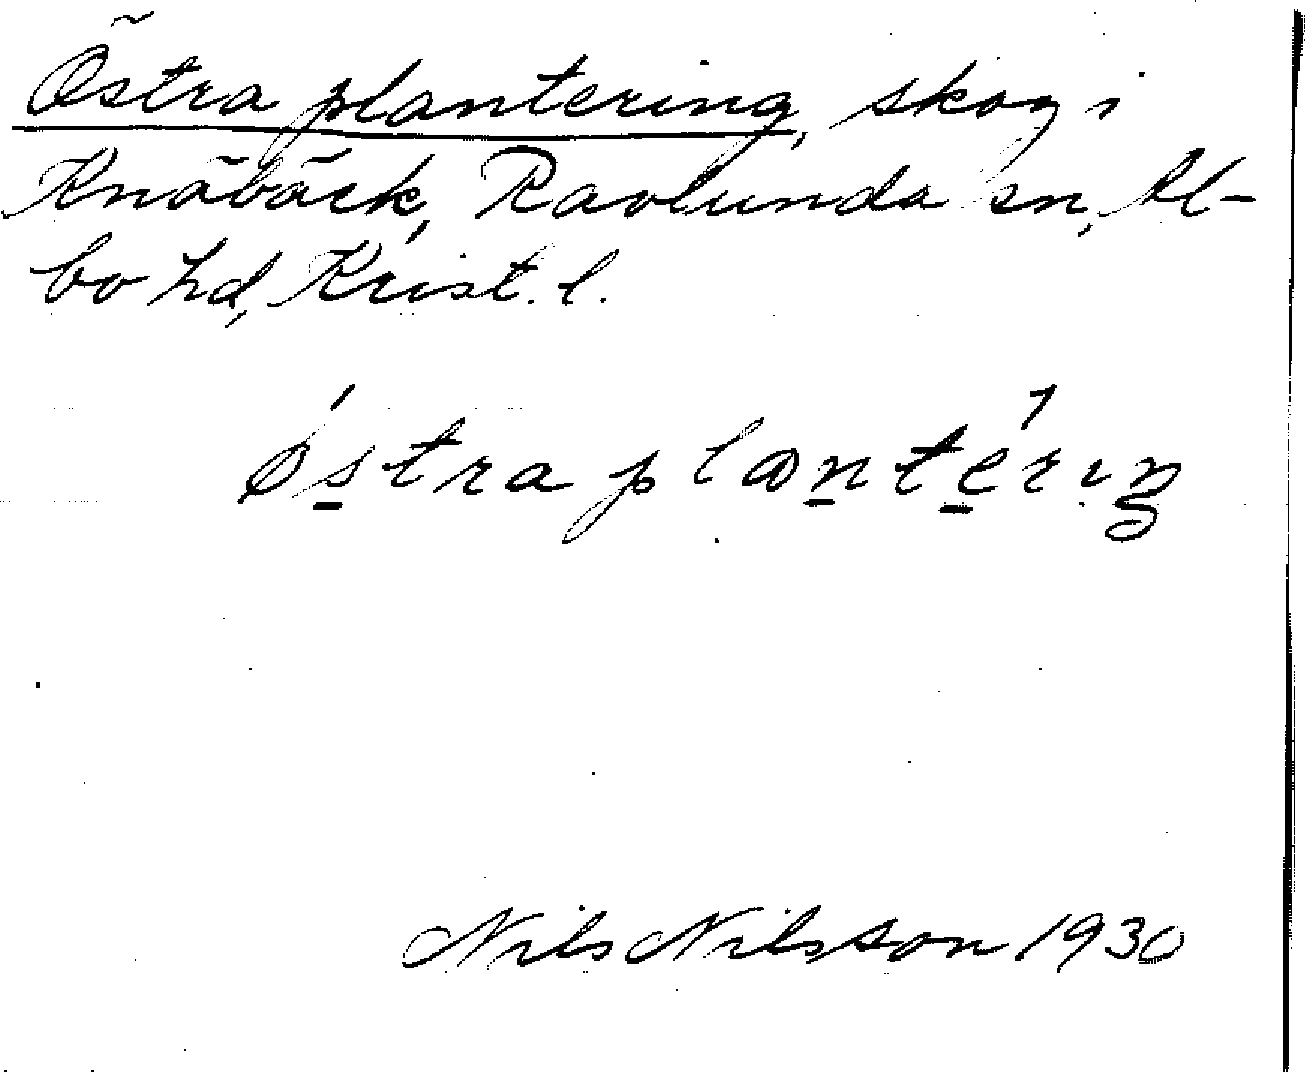 Östra plantering, skog i
Knäbäck, Ravlunda sn, Al-
bo hd, Krist. l.
ǿstra plantériŋ
Nils Nilsson 1930